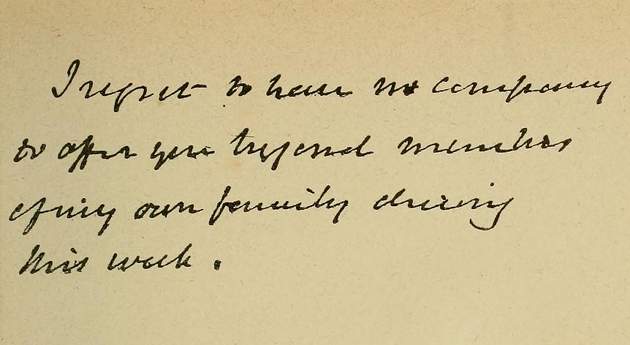 I regret to have no company
to offer you beyond members
of my own family during
this week.